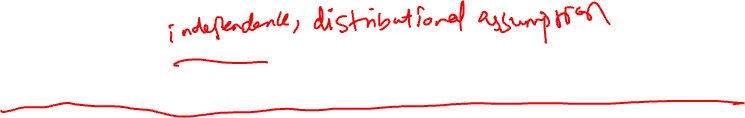 independence, distributional assumption